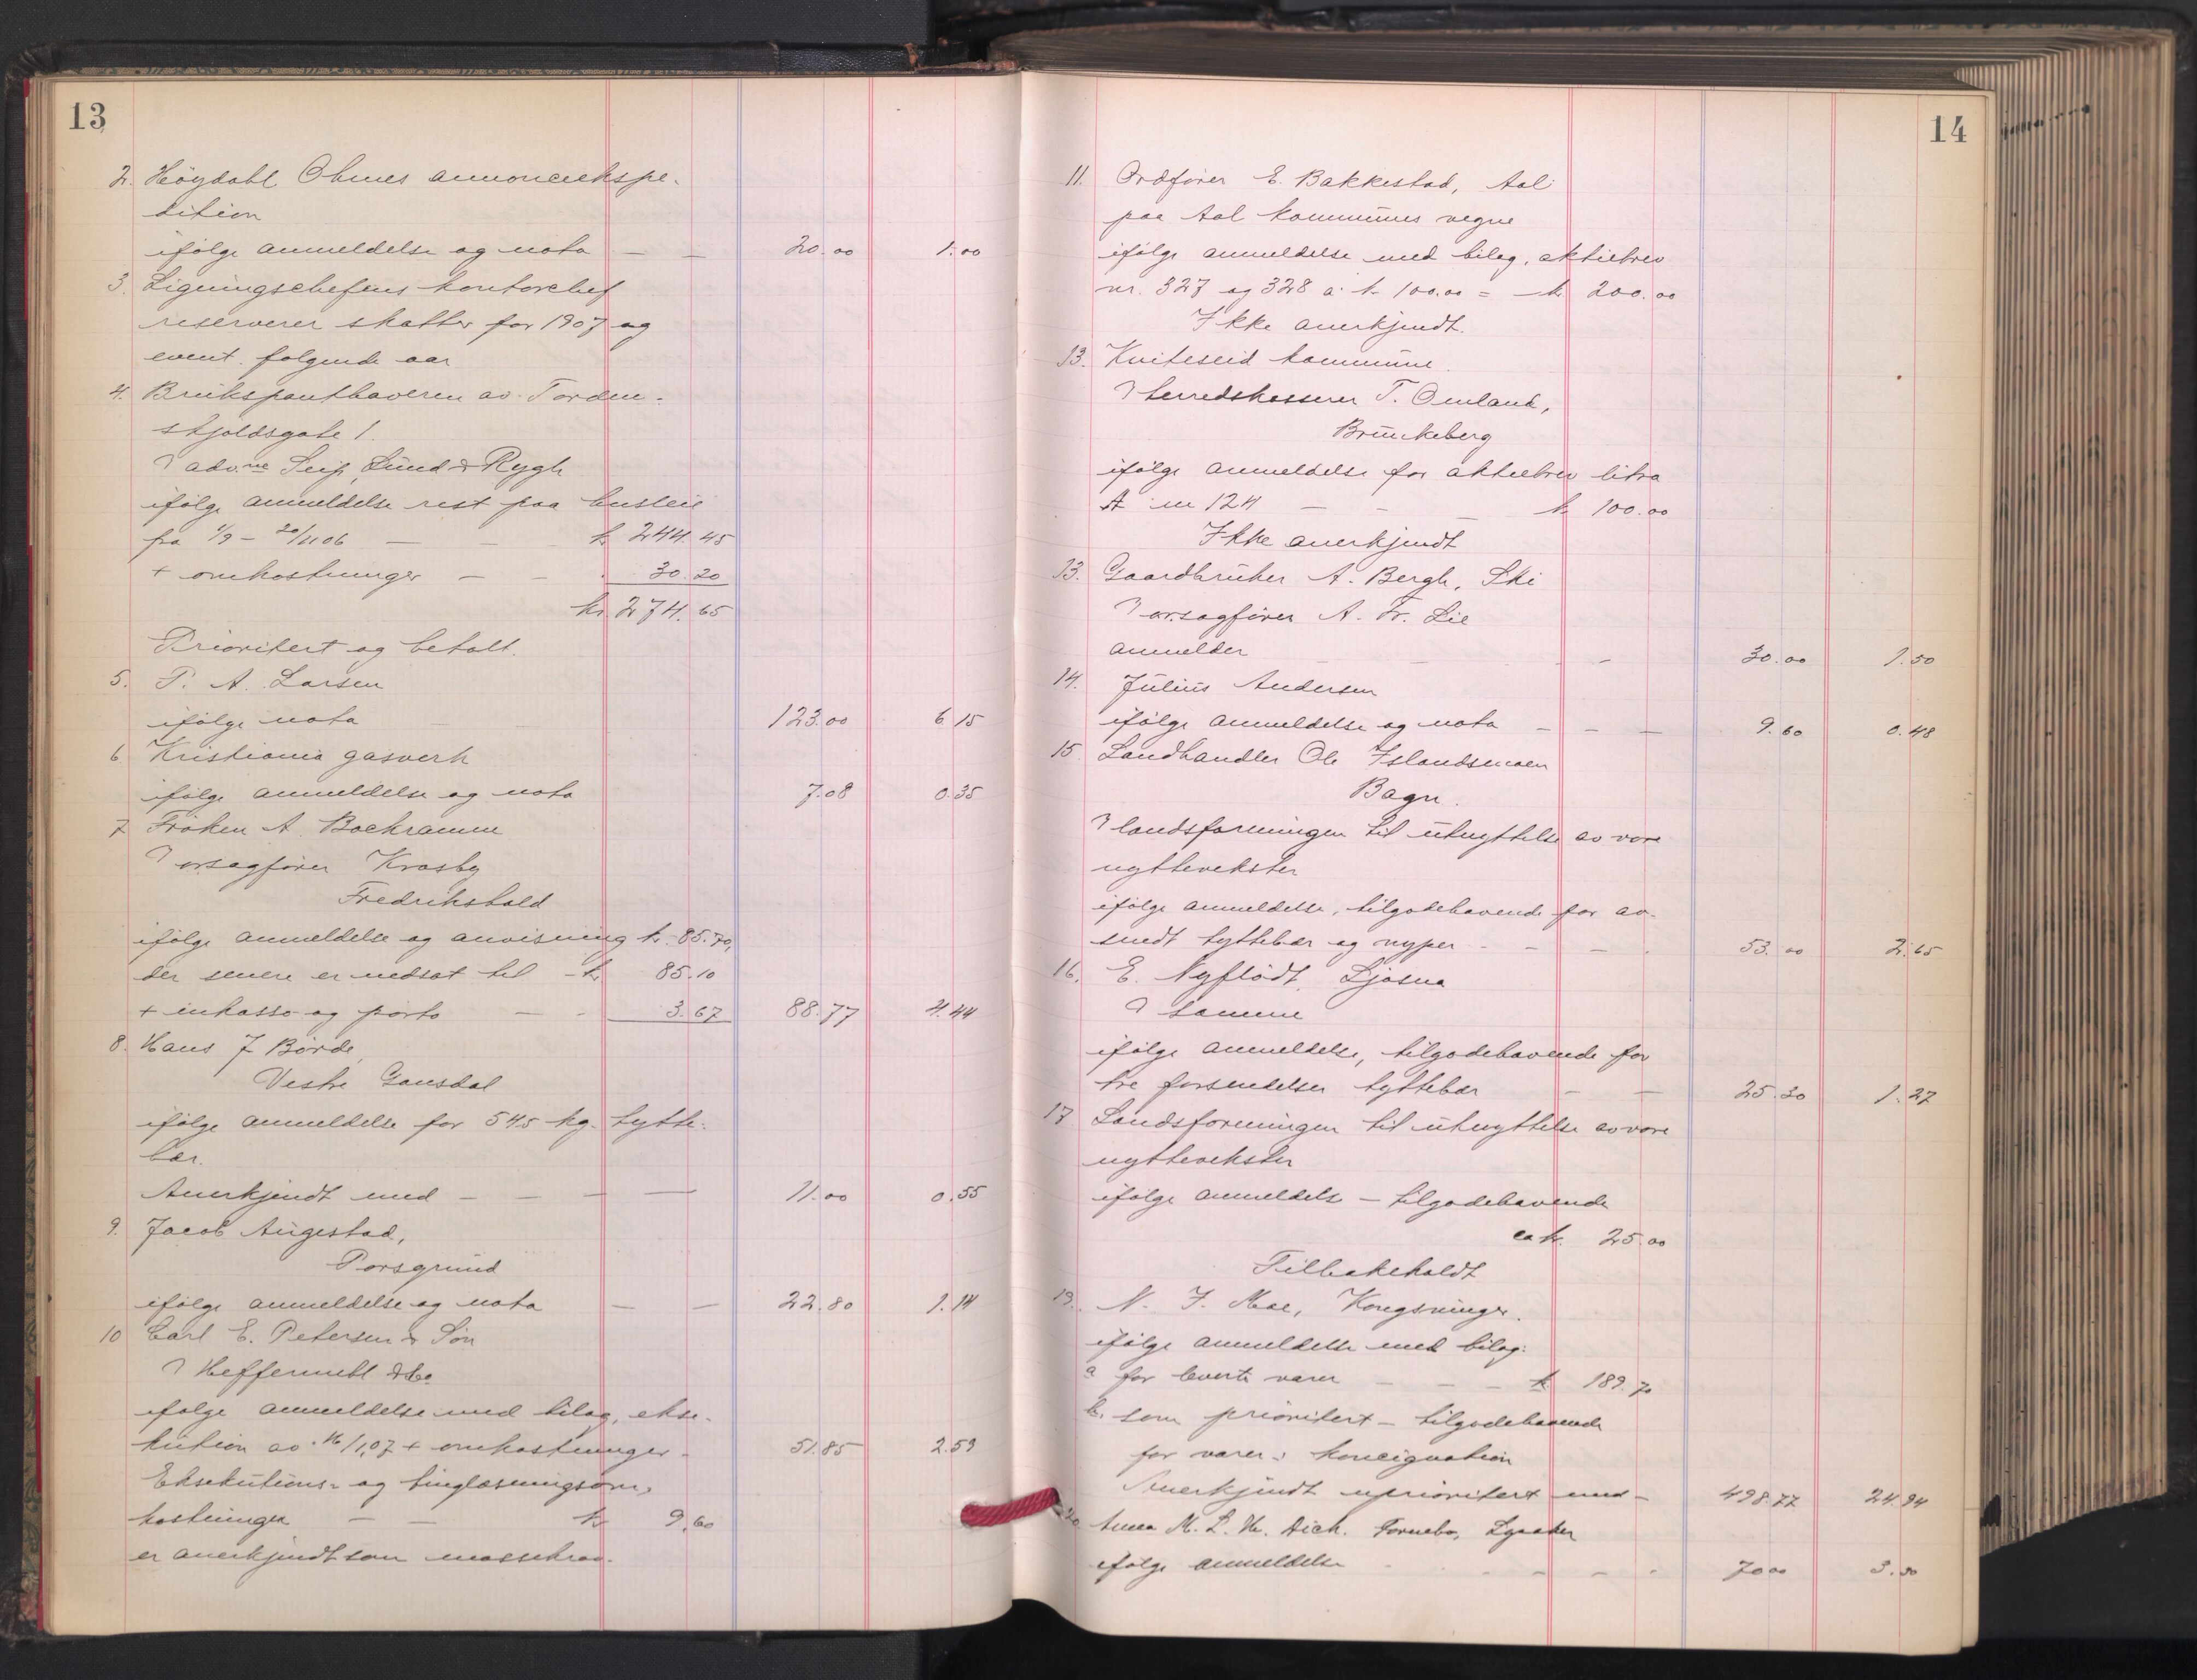 13
2. Höydahl Ohmes annoncekspe-
dition
ifølge anmeldelse og nota — — 20.00 1.00
3. Ligningschefens kontorchef
reserverer skatter for 1907 og
event. følgende aar
4. Brukspanthaveren av Torden-
skjoldsgate 1.
adv. Seip, Lund & Rygh
ifølge anmeldelse rest paa husleie
fra 1/9 – 20/11 06 — — kr 244.45
+ omkostninger — — 30.20
kr. 274.65
Prioritert og betalt.
5. P. A. Larsen
ifølge nota — — 123.00 6.15
6 Kristiania gasverk
ifølge anmeldelse og nota 7.08 0.35
7 Frøken A. Bockramm
orsagfører Krosby
Fredrikshald
ifølge anmeldelse og anvisning kr. 85.70,
der senere er nedsat til – kr 85.10
+ inkasso og porto — - 3.67 88.77 4.44
8. Hans J Börde,
Vestre Gausdal
ifølge anmeldelse for 54.5 kg. tytte-
bær.
Anerkjendt med — — — — 11.00 0.55
9. Jacob Augestad,
Porsgrund
ifølge anmeldelse og nota — — 22.80 1.14
10 Carl E. Petersen & Søn
Heffermehl & Co
ifølge anmeldelse med bilag, ekse-
kution av 16/1.07 + omkostninger - 51.85 2.59
Eksekutions- og tinglæsningsom-
kostninger — — kr 9.60
er anerkjendt som massekrav.
14
11. Ordfører E. Bakkestad, Aal
paa Aal kommunes vegne
ifølge anmeldelse med bilag, aktiebrev
nr. 327 og 328 a kr 100.00 = kr 200.00
Ikke anerkjendt.
13. Kviteseid kommune.
herredskasserer T. Omland,
Brunkeberg
ifølge anmeldelse for aktiebrev litra
A nr 124 — - — kr 100.00
Ikke anerkjendt
13. Gaardbruker A. Bergh, Ski
orsagfører A. Fr. Lie
anmelder — — - — 30.00 1.50
14. Julius Andersen
ifølge anmeldelse og nota — — — 9.60 0.48
15 Landhandler Ole Islandsmoen
Bagn.
landsforeningen til utnyttelse av vore
nyttevekster
ifølge anmeldelse, tilgodehavende for av-
sendt tyttebær og nyper - — — . 53.00 2.65
16. E. Nyflödt, Ljösna
samme
ifølge anmeldelse, tilgodehavende for
tre forsendelser tyttebær — — 25.30 1.27
17 Landsforeningen til utnyttelse av vore
nyttevekster
ifølge anmeldelse — tilgodehavende
ca kr. 25.00
Tilbakeholdt
19. N. J. Moe, Kongsvinger.
ifølge anmeldelse med bilag:
a for leverte varer — — - kr 189.70
b. som prioritert — tilgodehavende
for varer i koncignation
Anerkjendt uprioritert med — 498.77 24.94
20 Anna M. L. H. Dick. Fornebo, Lysaker
ifølge anmeldelse - - — — - 70.00 3.50